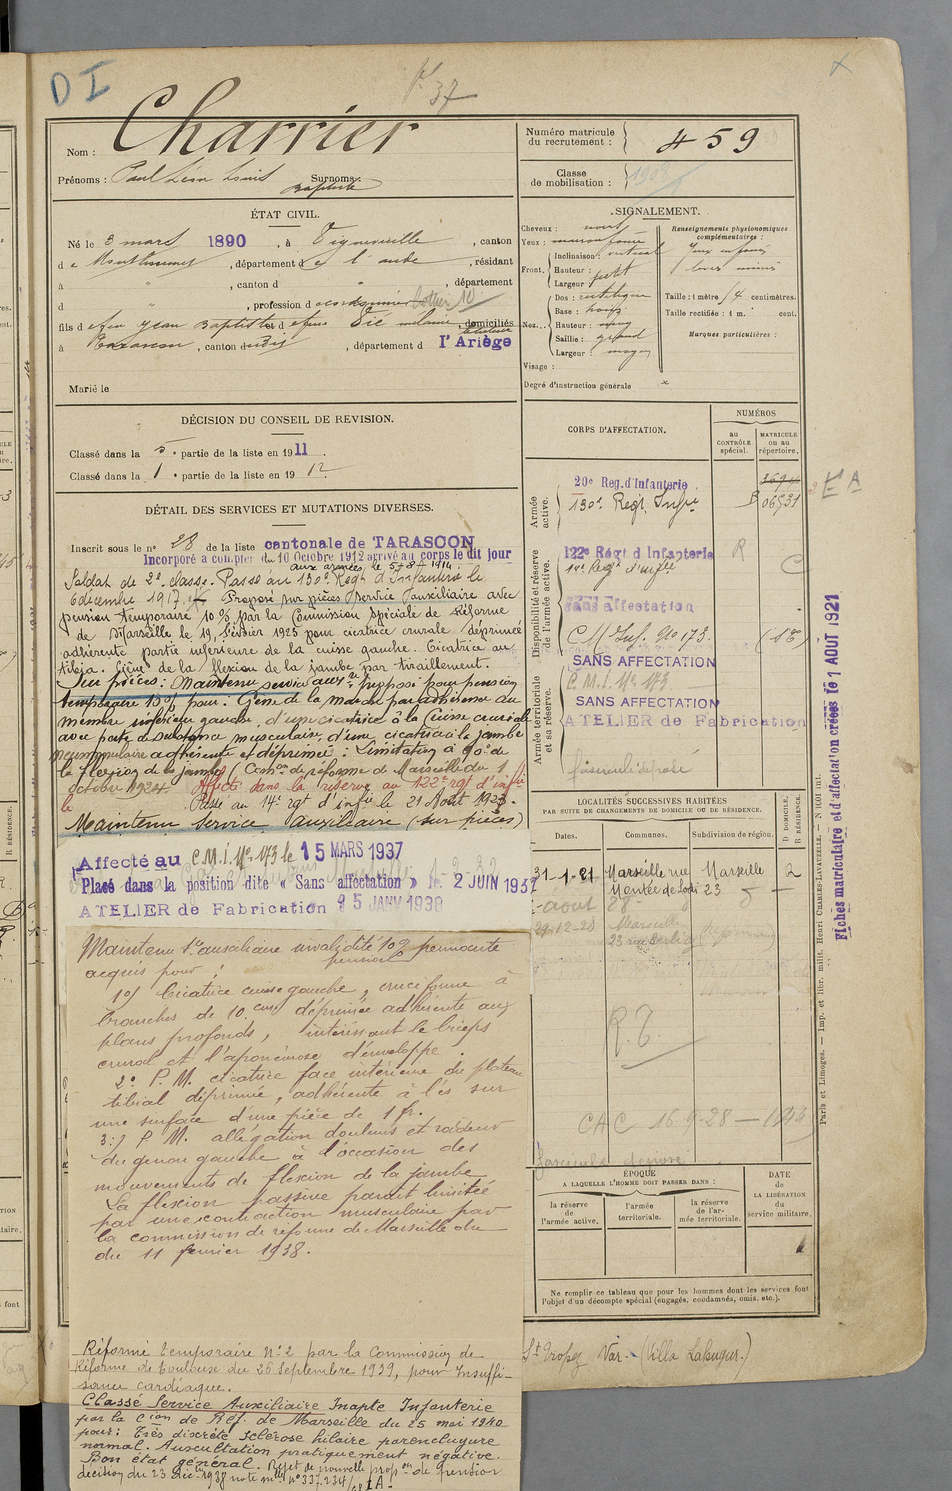 D I
37
Nom : Charrier
Prénoms : Paul Léon Louis Surnoms :
Baptiste
ÉTAT CIVIL.
Né le 3 mars 1890, à Vignevieille, canton
de Mouthoumet, département de l'aude, résidant
à " , canton d " , département
d " , profession d cordonnier
fils de feu Jean Baptiste et de feue Vié mélanie, domiciliés
à Tarascon, canton dudit, département d l'Ariège
Marié le
DÉCISION DU CONSEIL DE REVISION.
Classé dans la 5e partie de la liste en 1911.
Classé dans la 1 e partie de la liste en 1912
DÉTAIL DES SERVICES ET MUTATIONS DIVERSES.
Inscrit sous le no 28 de la liste cantonale de TARASCON
Incorporé à compter du 10 Octobre 1912 arrivé au corps le dit jour
aux armées le 5 8 1914.
Soldat de 2e classe. Passé au 130e Régt d'Infanterie le
6 décembre 1917. Proposé sur pièces service auxiliaire avec
pension temporaire 10% par la Commission spéciale de Réforme
de Marseille le 19 février 1925 pour cicatrice crurale déprimée
adhérente partie inférieure de la cuisse gauche. Cicatrice au
tibia. Gêne de la flexion de la jambe par tiraillement.
Sur pièces : Maintenu service auxre proposé pour pension
temporaire 10% pour : Gêne de la marche par adhérence au
membre inférieur gauche, d'une cicatrice à la Cuisse crurale
avec perte de substance musculaire, d'une cicatrice à la jambe
adhérente et déprimée : Limitation à 90° de
la flexion de la jambe. Comon de réforme de Marseille du 1
octobre 1924. Affecté dans la réserve au 122e rgt d'infie
le Passé au 14e rgt d'infie le 21 Août 1923.
Maintenu Service Auxiliaire (sur pièces)
Affecté au C.M.I. No 173 le 15 MARS 1937
Placé dans la position dite « Sans affectation » le 2 JUIN 1937
ATELIER de Fabrication 25 JANV 1938
Maintenu Sce auxiliaire invalidité 10% permanente
pension
acquis pour :
1o/ Cicatrice cuisse gauche, cruciforme à
branches de 10 cm déprimée adhérente aux
plans profonds, intéressant le biceps
crural et l'aponévrose d'enveloppe.
2o P.M. cicatrice face intérieure du plateau
tibial déprimée, adhérente à l'os sur
une surface d'une pièce de 1 fr.
3o/ P.M. allégation douleurs et raideur
du genou gauche à l'occasion des
mouvements de flexion de la jambe
La flexion passive parait limitée
par une contraction musculaire par
la commission de réforme de Marseille du
du 11 février 1938.
Réformé temporaire No 2 par la Commission de
Réforme de Toulouse du 26 Septembre 1939, pour Insuffi-
sance cardiaque.
Classé Service Auxiliaire Inapte Infanterie
par la Cion de Réf. de Marseille du 25 mai 1940
pour : Très discrète sclérose hilaire parenchyme
normal. Auscultation pratiquement négative.
Bon état général. Rejet de nouvelle propon de pension
décision du 23 Décbre 1938 note mlle no 337.234
Numéro matricule
du recrutement : 459
Classe
de mobilisation :
SIGNALEMENT.
Cheveux : noirs
Yeux : marron foncé
Front. Inclinaison : vertical
Hauteur : petit
Largeur :
Nez... Dos : rectiligne
Base :
Hauteur : moy
Saillie : grand
Largeur : moyen
Visage :
Renseignements physionomiques
complémentaires :
Yeux enfoncés
lèvres minces
Taille : 1 mètre centimètres.
Taille rectifiée : 1 m. cent.
Marques particulières :
Degré d'instruction générale
CORPS D'AFFECTATION.
NUMÉROS
au
CONTRÔLE
spécial.
MATRICULE
ou au
répertoire.
Armée
active.
20e Reg. d'Infanterie
130e Régt Infie
Disponibilité et réserve
de l'armée active.
122e Régt d'Infanterie R
14e Regt d'infie
Sans affectation
C M Inf. No 173.
SANS AFFECTATION
Armée territoriale
et sa réserve.
C.M.I. No 173
SANS AFFECTATION
ATELIER de Fabrication
LOCALITÉS SUCCESSIVES HABITÉES
PAR SUITE DE CHANGEMENTS DE DOMICILE OU DE RÉSIDENCE.
Dates. Communes. Subdivision de région.
D DOMICILE.
R RÉSIDENCE.
31-1-21 Marseille rue Marseille R
Montée de Lodi 23
août 28
29-12-28 Marseille
R.T
CAC 16-9-28
ÉPOQUE
A LAQUELLE L'HOMME DOIT PASSER DANS :
la réserve
de
l'armée active.
l'armée
territoriale.
la réserve
de l'ar-
mée territoriale.
DATE
de
LA LIBÉRATION
du
service militaire.
Ne remplir ce tableau que pour les hommes dont les services font
l'objet d'un décompte spécial (engagés, condamnés, omis, etc.).
St Tropez Var.
Paris et Limoges. — Imp. et libr. milit. Henri CHARLES-LAVAUZELLE.
Fiches matriculaire et d'affectation créées le 1 AOUT 1921